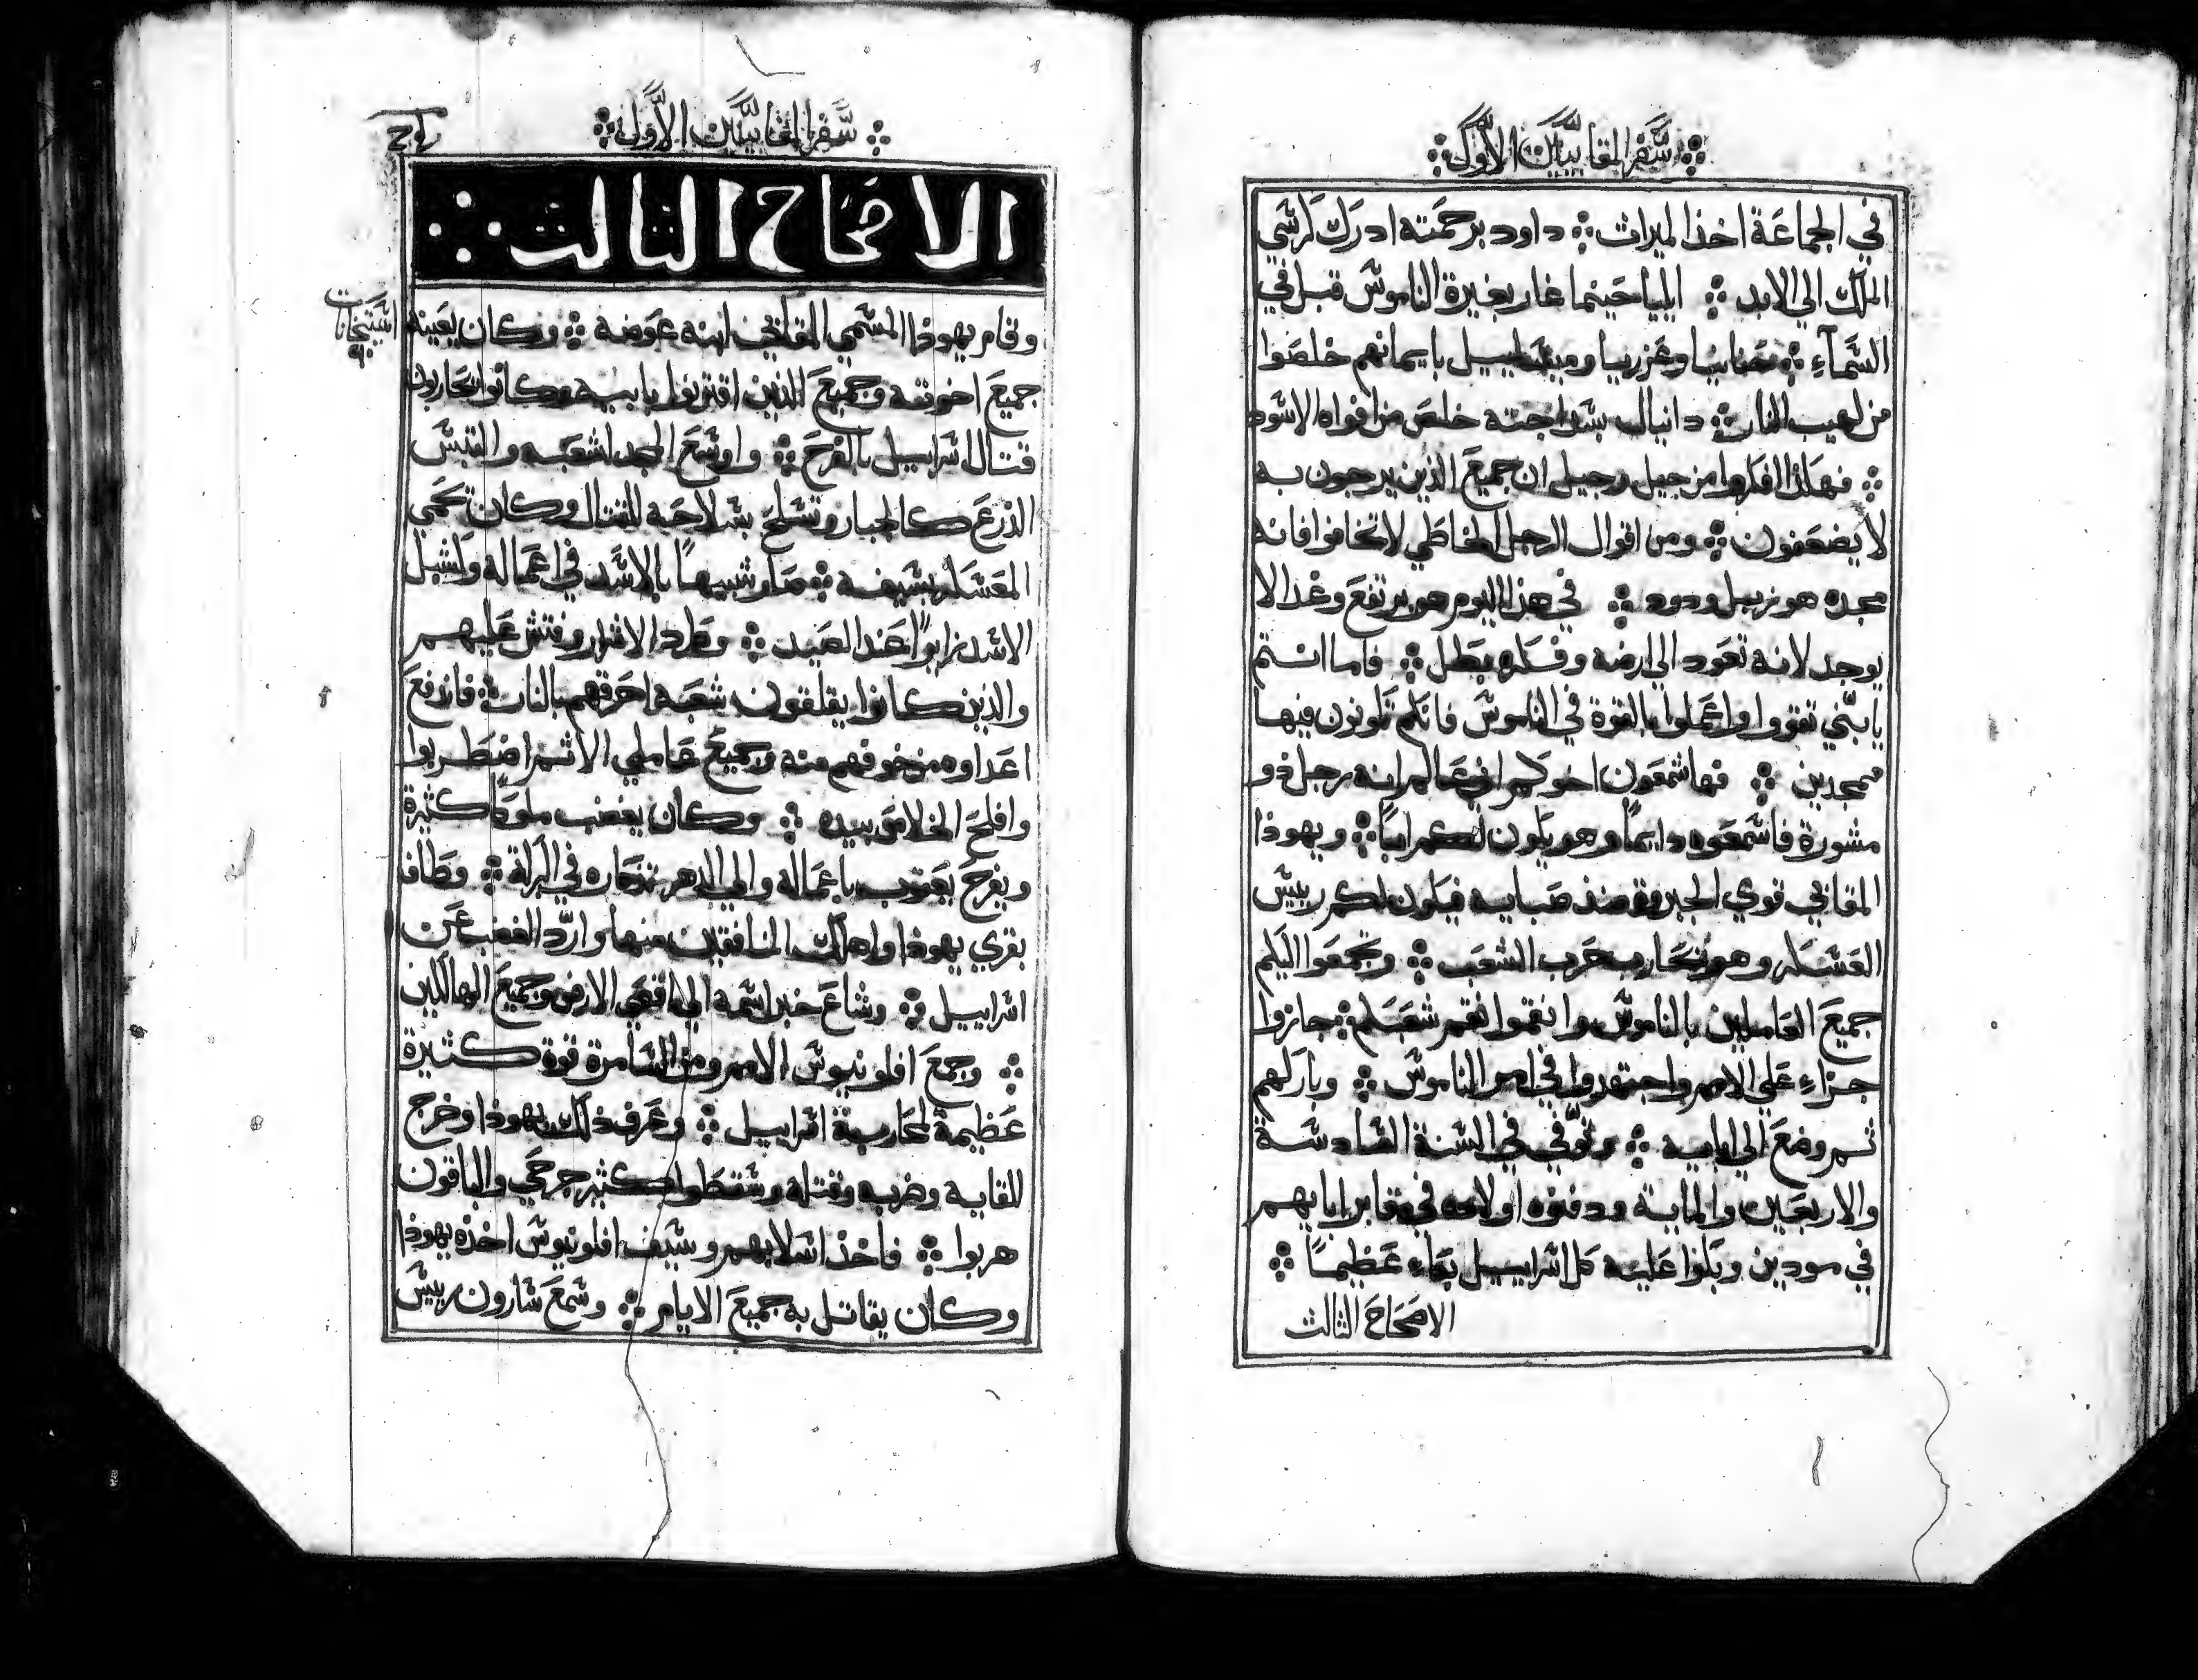 سفر المقابيين الاول
في الجماعة اخذ الميراث داود برحمته ادرك كرسي
الملك الي الابد ايليا حينما غار بغيرة الناموس قبل في
السمآء حنانيا وعزريا وميشاييل بايمانهم خلصوا
من لهيب النار دانيال بسداجته خلص من افواه الاسود
فهكذا افكروا من جيل وجيل ان جميع الذين يرجون به
لا يضعفون ومن اقوال الرجل الخاطي لا تخافوا فانه
مجده هو زبل ودود في هذا اليوم هو يرتفع وغدا لا
يوجد لانه تعود الي ارضه وفكره بطل فاما انتم
يا بنّي تقووا واعملوا بالقوة في الناموس فانكم تكونون فيها
ممجدين فها شمعون اخوكم اني عالم انه رجل ذو
مشورة فاسمعوه دايمًا وهو يكون لكم ابًا ويهوذا
المقابي قوي الجبروة منذ صبايه فيكون لكم رييس
العسكر وهو يحارب حرب الشعب وتجمعوا اليكم
جميع العاملين بالناموس وانقموا نقم شعبكم جازوا
جزاء علي الامم واجتهدوا في امر الناموس وباركهم
ثم وضع الي ابايه وتوّفي في السنة السادسة
والاربعين والماية ودفنوه اولاده في مقابر ابايهم
في مودين وبكوا عليه كل اسراييل بكاء عظيمًا
الاصحاح الثالث
سفر المقابيين الاول
الاصحاح الثالث
وقام يهوذا المسمي المقابي ابنه عوضه وكان يعينه
جميع اخوته وجميع الذين اقترنوا بابيه وكانوا يحاربون
قتال اسراييل بالفرح واوسع المجد لشعبه والتبس
الدرع كالجبار وتسلح بسلاحه للقتال وكان يحمي
المعسكر بسيفه صار شبيهًا بالاسد في اعماله وكشبل
الاسد زايرًا عند الصيد وطرد الاشرار وفتش عليهم
والذين كانوا يقلقون شعبه احرقهم بالنار فاندفع
اعداوه من خوفهم منه وجميع عاملي الاثم اضطربوا
وافلح الخلاص بيده وكان يغضب ملوكًا كثيرة
ويفرح يعقوب باعماله والي الدهر تذكاره في البركة وطاف
بقري يهوذا واهلك المنافقين منها وارّد الغضب عن
اسراييل وشاع خبر اسمه الي اقصي الارض وجميع الهالكين
وجمع افلونيوس الامم ومن السامرة قوة كثيرة
عظيمة لمحاربة اسراييل وعرف ذلك يهوذا وخرج
للقايه وضربه وقتله وسقطوا كثير جرحي والباقون
هربوا فاخذ اسلابهم وسيف افلونيوس اخذه يهوذا
وكان يقاتل به جميع الايام وسمع سارون رييس